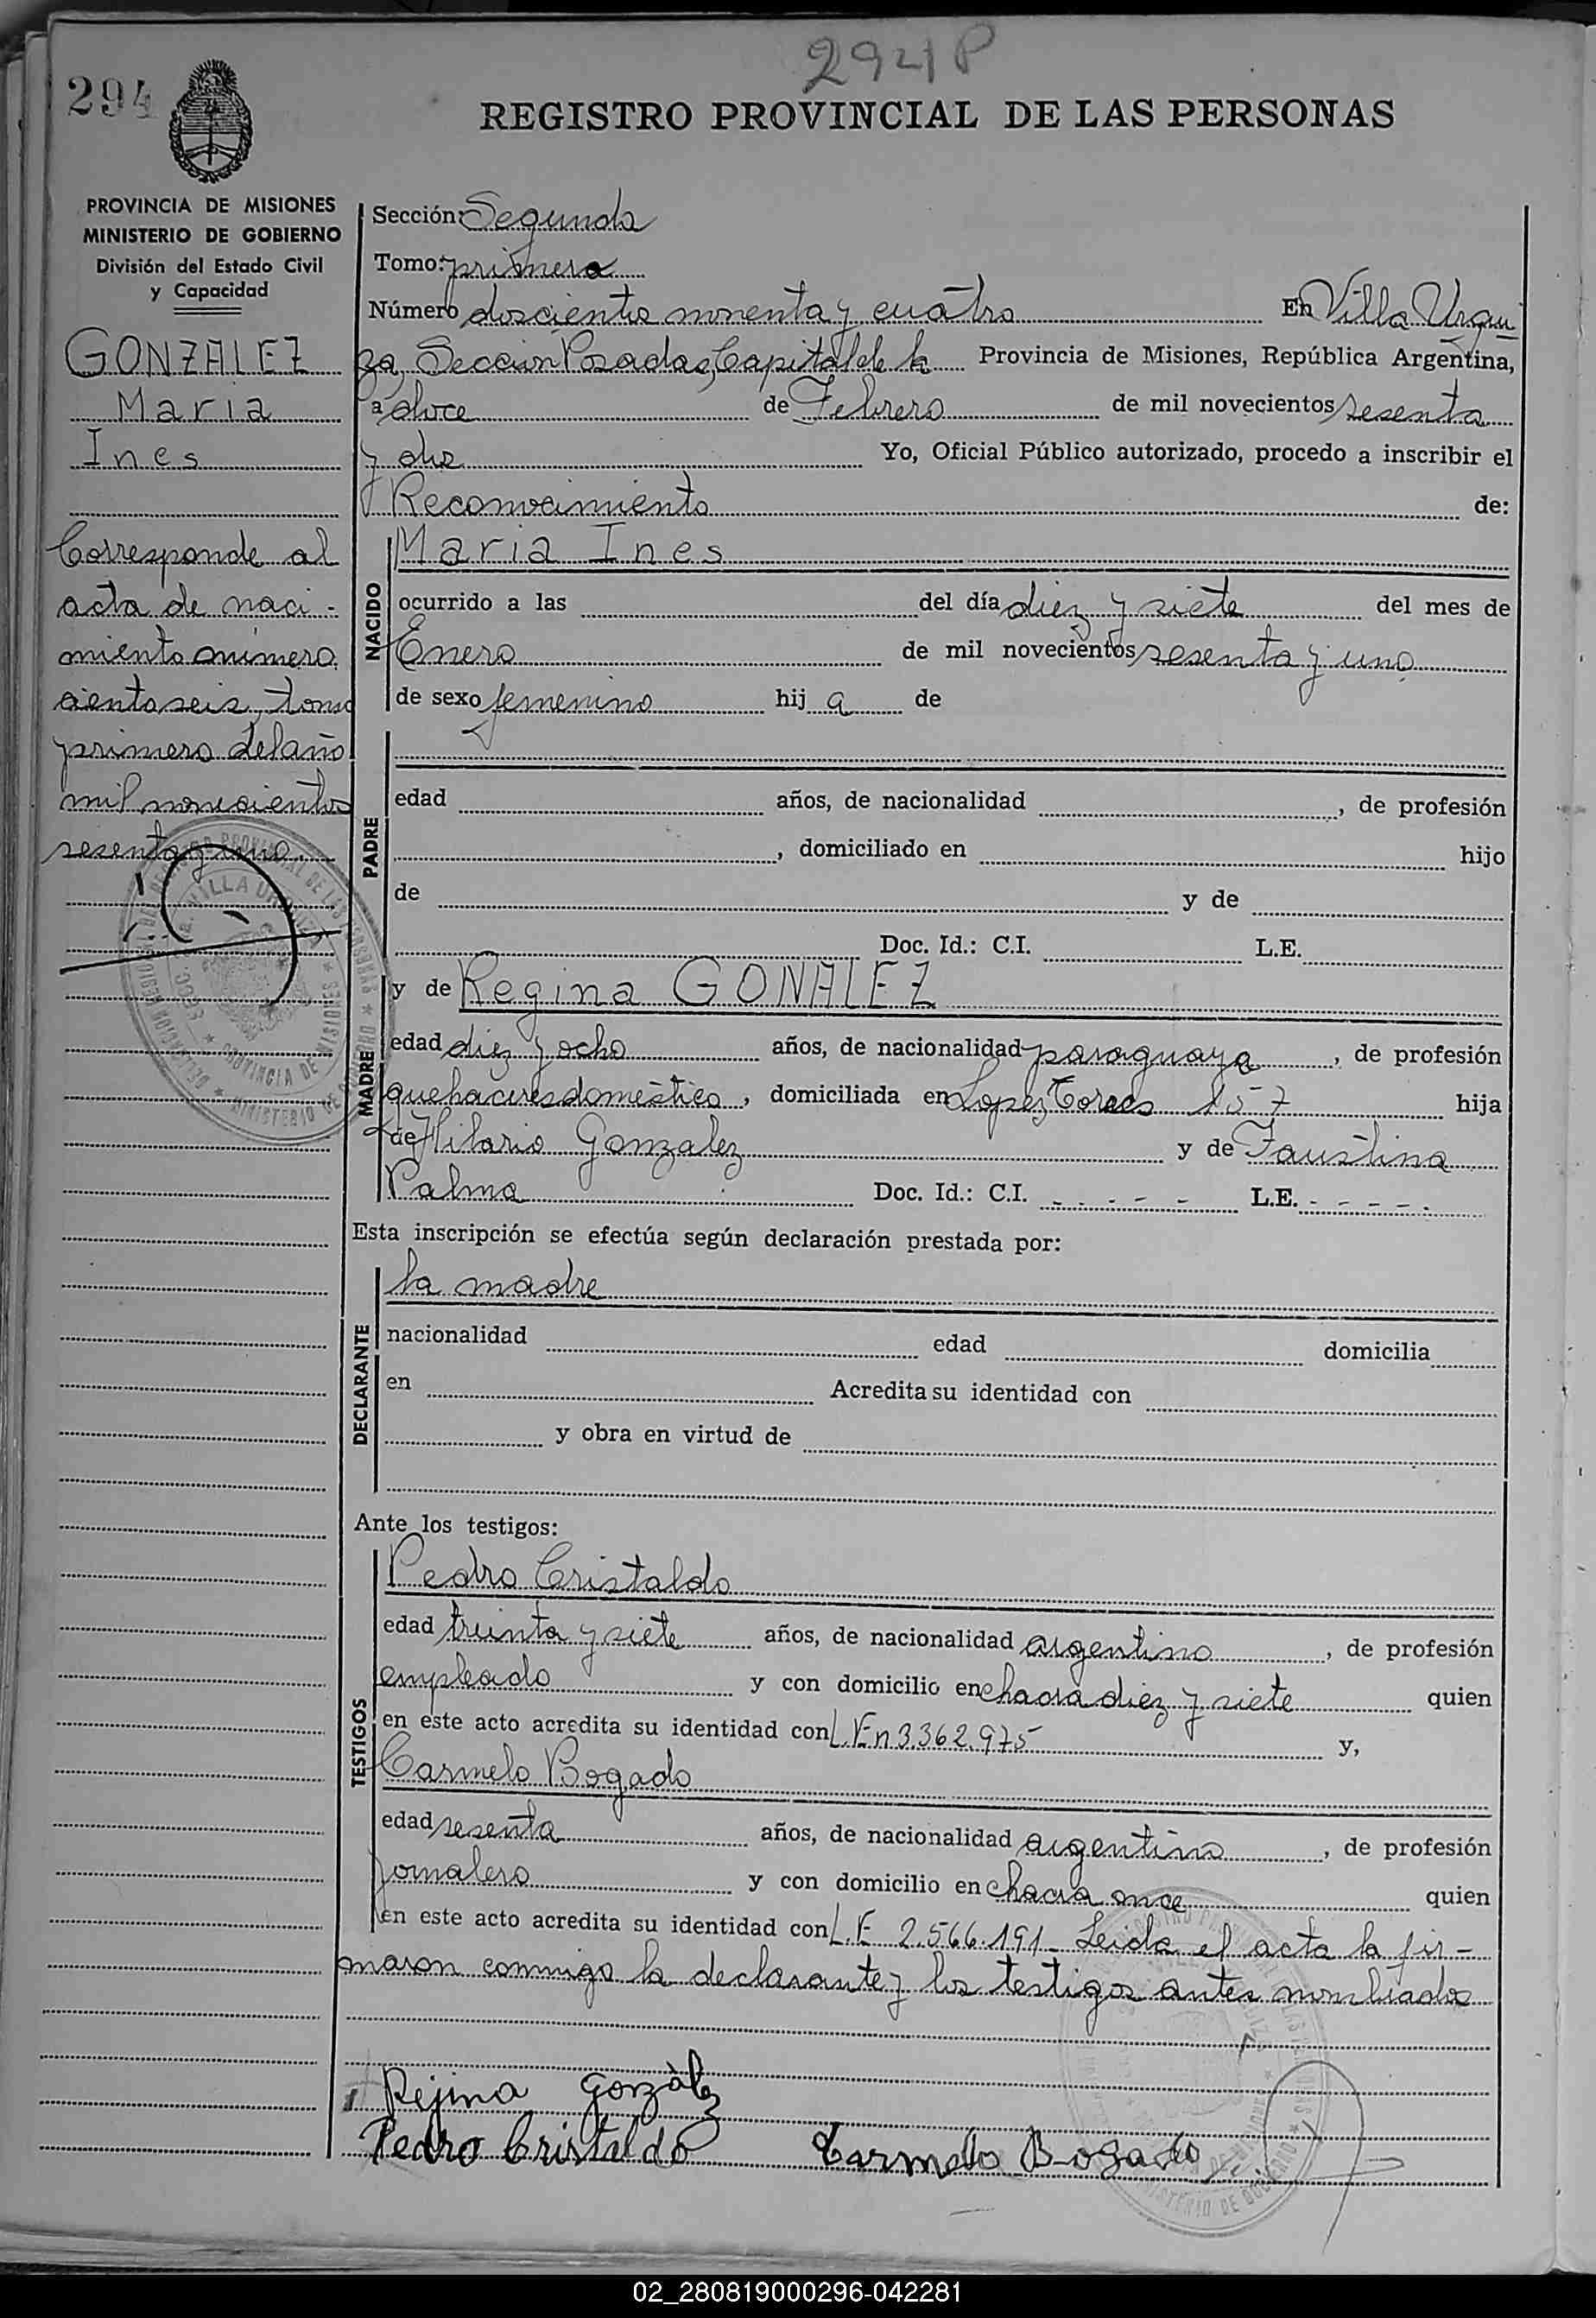 2941P
294
REGISTRO PROVINCIAL DE LAS PERSONAS
PROVINCIA DE MISIONES
MINISTERIO DE GOBIERNO
División del Estado Civil
y Capacidad
GONZALEZ
Maria
Ines
Corresponde al
acta de naci-
miento número
cientoseis, tomo
primero del año
mil novecientos
sesenta y uno.
Sección: Segunda
Tomo: primero
Número doscientos noventa y cuatro En Villa Urqui
za, Sección Posadas, Capital de la Provincia de Misiones, República Argentina,
a doce de Febrero de mil novecientos sesenta
y dos Yo, Oficial Público autorizado, procedo a inscribir el
Reconocimiento de:
NACIDO
Maria Ines
ocurrido a las del día diez y siete del mes de
Enero de mil novecientos sesenta y uno
de sexo femenino hij a de
PADRE
edad años, de nacionalidad , de profesión
, domiciliado en hijo
de y de
Doc. Id.: C.I. L.E.
MADRE
y de Regina GONALEZ
edad diez y ocho años, de nacionalidad paraguaya , de profesión
quehaceres doméstico , domiciliada en Lopez Torres 157 hija
de Hilario Gonzalez y de Faustina
Palma Doc. Id.: C.I. - - - - - L.E. - - - - -
Esta inscripción se efectúa según declaración prestada por:
DECLARANTE
la madre
nacionalidad edad domicilia
en Acredita su identidad con
y obra en virtud de
Ante los testigos:
TESTIGOS
Pedro Cristaldo
edad treinta y siete años, de nacionalidad argentino , de profesión
empleado y con domicilio en chacra diez y siete quien
en este acto acredita su identidad con L.E n 3.362.975 y,
Carmelo Bogado
edad sesenta años, de nacionalidad argentino , de profesión
jornalero y con domicilio en chacra once quien
en este acto acredita su identidad con L.E 2.566.191- Leida el acta la fir-
maron conmigo la declarante y los testigos antes nombrados
Rejina Gonzàlez
Pedro Cristaldo Carmelo Bogado
02_280819000296-042281